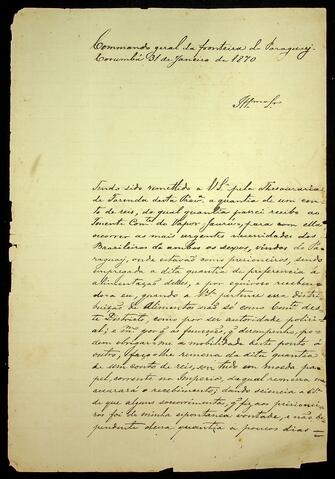 Commando geral da fronteira do Paraguay
Corumbá 31 de Janeiro de 1870
Illmo Sr
Tendo sido remettido a VSa pela Thesouraria
de Fazenda desta Prov. a quantia de um con
to de reis, da qual quantia passei recibo ao
Tenente Comte do Vapor Jaurú, para com ella
occorrer as mais urgentes necessidades dos
Brasileiros de ambos os sexos, vindos do Pa
raguay, onde estavão como prisioneiros, sendo
empregada a dita quantia de preferencia á
alimentação delles, e por equivoco receben
do a eu, quando a VSa pertencia sua distri
buição de Alimentos não só como Comte des
te Districto, como por ser autoridade polici
al; e mo por q as funcções, q desempenho, po
dem obrigar me a mobilidade deste ponto á
outro, faço lhe remessa da dita quantia
de um conto de reis, em tudo em moeda pa
pel, corrente no Imperio, da qual remessa me
accusará o recebimento; dando sciencia a VSa
de que alguns soccorrimentos, q fiz aos prisionei
ros foi de minha espontanea vontade, e não
pendente dessa quantia a poucos dias